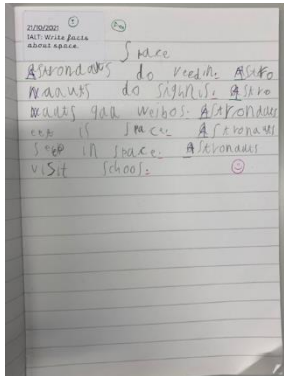 21/10/2021
IALT: Write facts
about space.
Space
Astrondauts do reedin. Astro
naauts do Sighnis. Astro
nauts gaa weibos. Astronauts
eet is Space. Astronauts
Seep in Space. Astronauts
visit School.